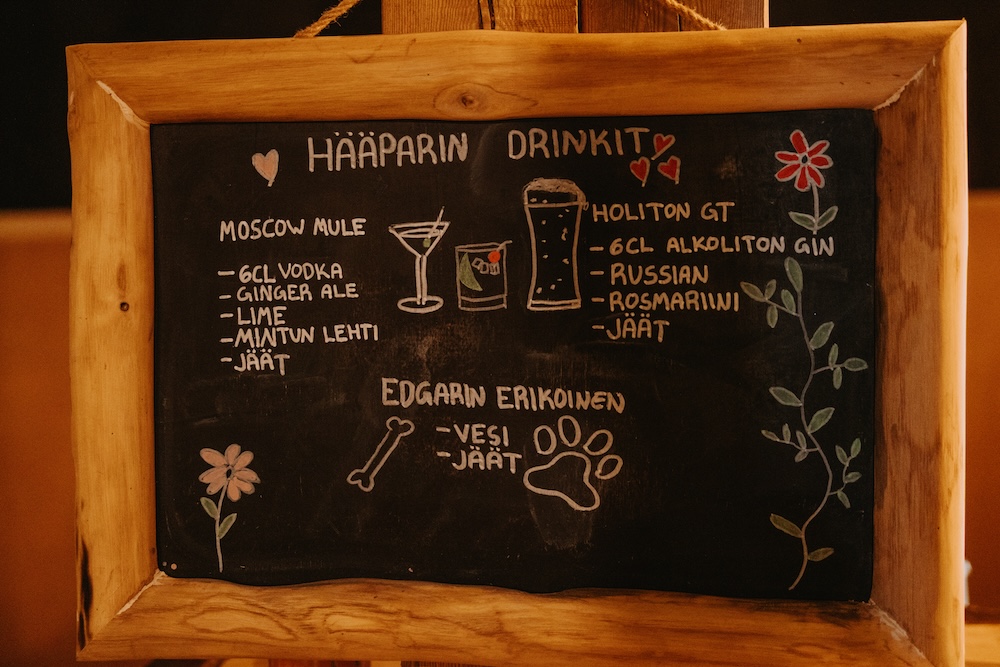 HÄÄPARIN DRINKIT
MOSCOW MULE
- 6CL VODKA
- GINGER ALE
- LIME
- MINTUN LEHTI
- JÄÄT
HOLITON GT
- 6CL ALKOLITON GIN
- RUSSIAN
- ROSMARIINI
- JÄÄT
EDGARIN ERIKOINEN
- VESI
- JÄÄT